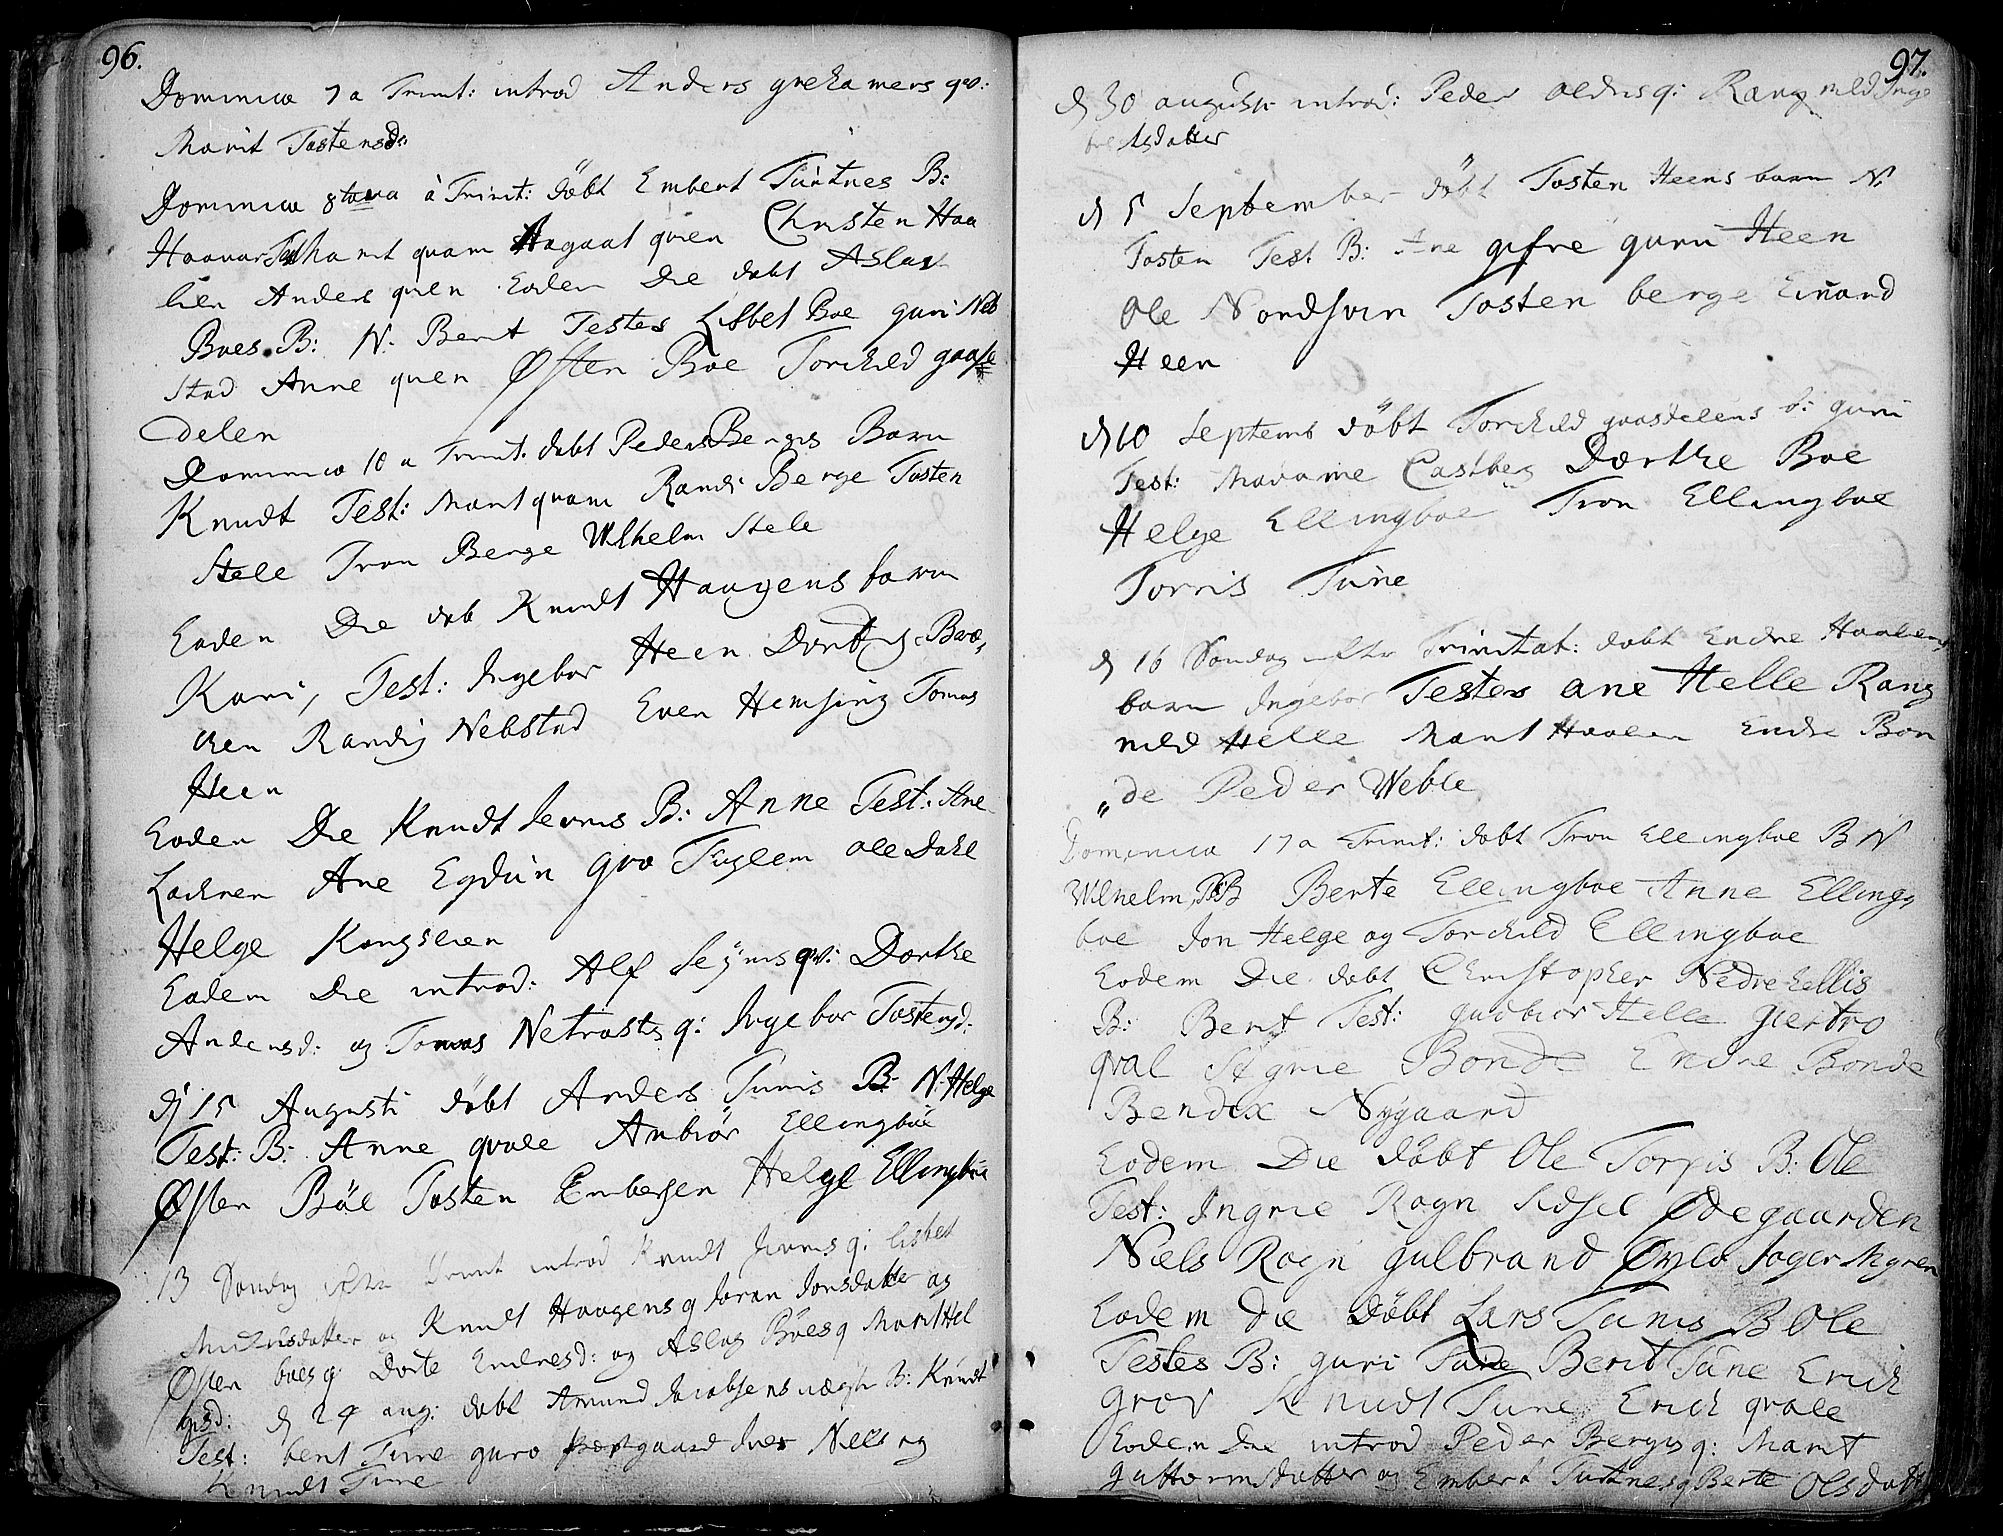 96.
Dominica 7 a Trinit: introd Anders grekamers qv:
Marit Tostensd:
Dominica 8tava à Trinit: döbt Embert Turtnes B:
Haavar Marit quam Aagaat qvien Christen Haa
lien Anders qvien Eodem Die döbt Aslak
Boes B: N: Berit Testes Lisbet Boe guri Neb
stad Anne qvien Østen Boe Torchild gaase
delen
Dominica 10 a Trinit. döbt Peders Berges Barn
Knudt Test: Marit quam Randi Berge Tosten
Stele Tron Berge Wilhelm Stele
Eodem Die döb Knudt Haugens barn
Kari, Test: Ingebor Heen Dorte Bræ,
chen Randi Nebstad Even Hemsing Tomas
Heen
Eodem Die Knudt Jevnis B: Anne Test: Ane
Lachren Ane Egdun gro Fuglem Ole Dahl
Helge Kongslien
Eodem Die introd: Alf qv: Dorthe
Andersd: og Tomas Netrosts q: Ingebor Tostensd:
dj 15 Augusti döbt Anders Tunis B: N: Helge
Test: B: Anne qvale Anbiör Ellingböe
Østen Böe Tosten Embersen Helge Ellingböe
13 Sondag efter Trinit introd Knudt Jevnis q: lisbet
datter og Knudt Haugens q Joran Jonsdatter og
Østen boes q: Dorte Endresd: og Aslag Böes q Marit Hel
gesd: d 24 aug: döbt Amund B: Knudt
Test: berit Tune guro Niels og
Knudt Tune
97.
d 30 augusti introd: Peder q: Rang nild Inge
bretsdatter
d 5 September döbt Tosten Heens barn N:
Tosten Test B: Ane gifre guri Heen
Ole Nordsvin Tosten berge Einard
Heen
d 10 Septemb döbt Torchild gaasdelens b: guri
Test: Madame Castberg Dorthe Boe
Helge Ellingboe Tron Ellingboe
Torris Tune
d 16 Sondag efter Trinitat: döbt Endre Haalens
barn Ingebor Testes ane Helle Rang
nild Helle Marit Haalen Endre Bon
„de Peder Weble
Dominica 17 a Trinit: döbt Tron Ellingboe B N
Wilhelm, T: B Berte Ellingboe Anne Ellingg
boe Jon Helge og Torchild Ellingboe
Eodem Die döbt Christopher Nedre hellis
B: Berit Test: gudbior Helle giertro
qval Signe Bonde Endre Bonde
Bendix Nygaard
Eodem Die döbt Ole Torpis B: Ole
Test: Ingrie Rogn Sidsel Ødegaarden
Niels Rogn gulbrand
Eodem Die döbt Lars Tunis B Ole
Testes B: guri Tune Berit Tune Erich
grov Knudt Tune Erich qvale
Eodem Die introd Peder Berges q: Marit
guttormsdatter og Embert Turtnes q Berte Olsdatt